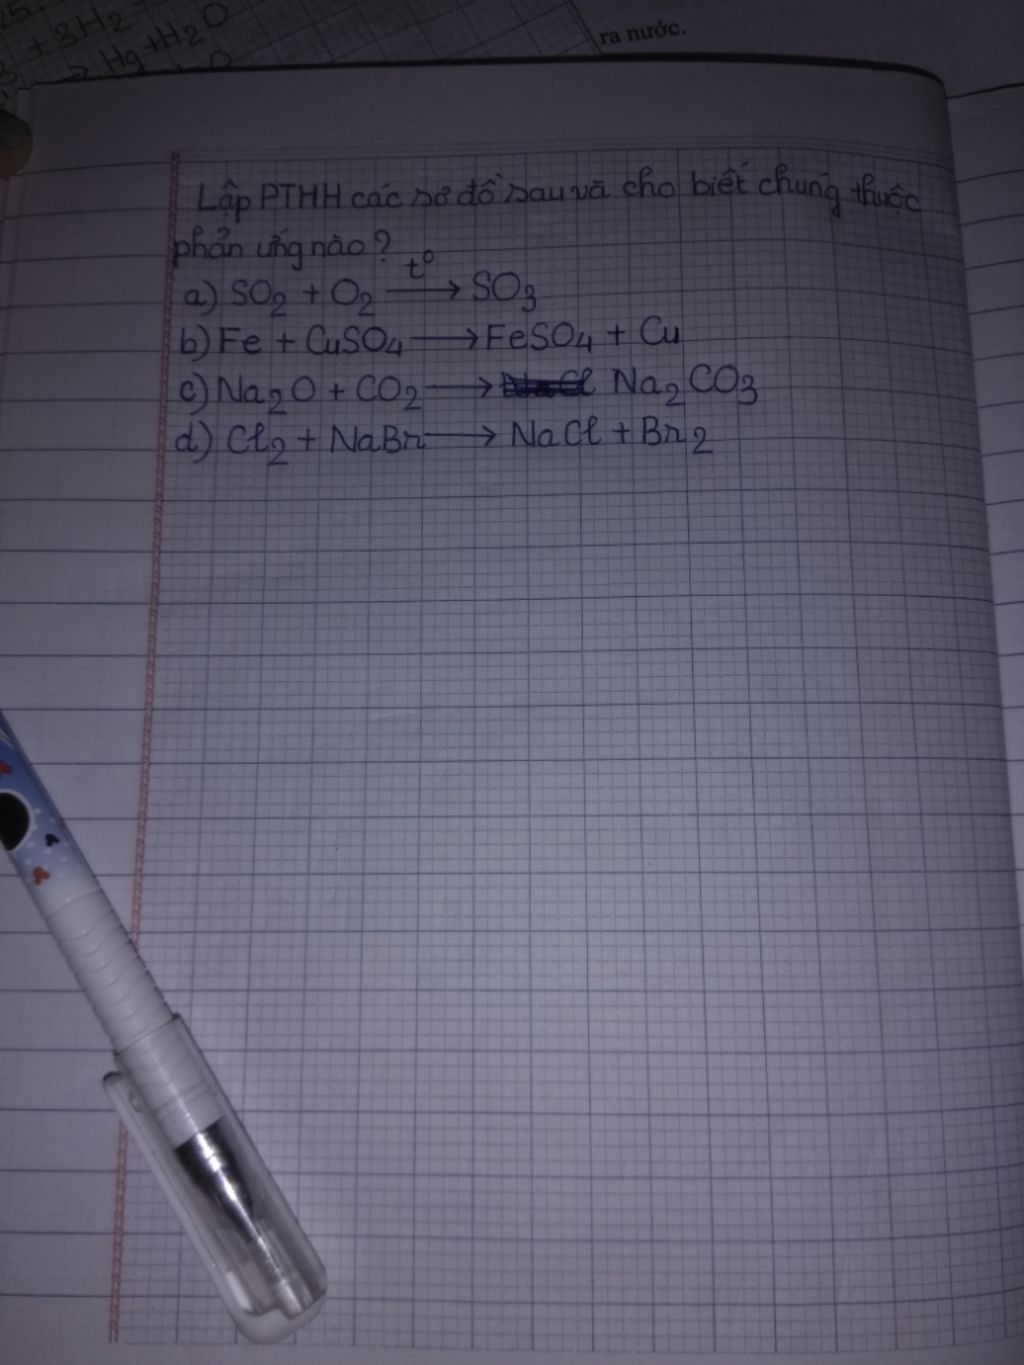 25
+ 3H2
→ Hg + H2O
ra nước.
Lập PTHH các sơ đồ sau và cho biết chúng thuộc
phản ứng nào?
a) SO2 + O2 —t°→ SO3
b) Fe + CuSO4 → FeSO4 + Cu
c) Na2O + CO2 → Na2CO3
d) Cl2 + NaBr → NaCl + Br2